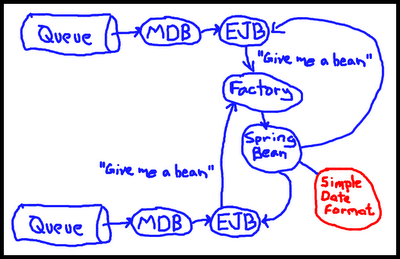 Queue
MDB
EJB
"Give me a bean"
Factory
Spring
Bean
"Give me a bean"
Simple
Date
Format
Queue
MDB
EJB